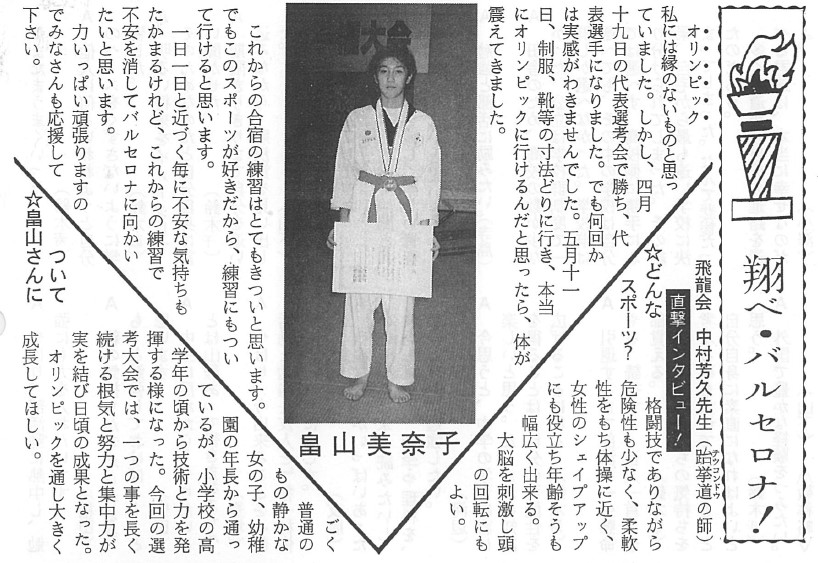 翔べ・バルセロナ！
オリンピック
私には縁のないものと思っ
ていました。しかし、四月
十九日の代表選考会で勝ち、代
表選手になりました。でも何回か
は実感がわきませんでした。五月十一
日、制服、靴等の寸法どりに行き、本当
にオリンピックに行けるんだと思ったら、体が
震えてきました。
これからの合宿の練習はとてもきついと思います。
でもこのスポーツが好きだから、練習にもつい
て行けると思います。
一日一日と近づく毎に不安な気持ちも
たかまるけれど、これからの練習で
不安を消してバルセロナに向かい
たいと思います。
力いっぱい頑張りますの
でみなさんも応援して
下さい。
権大会
畠山美奈子
飛龍会 中村芳久先生（跆挙道の師）
テツコンドウ
直撃インタビュー！
☆どんな
スポーツ？
格闘技でありながら
危険性も少なく、柔軟
性をもち体操に近く、
女性のシェイプアップ
にも役立ち年齢そうも
幅広く出来る。
大脳を刺激し頭
の回転にも
よい。
☆畠山さんに
ついて
ごく
普通の
もの静かな
女の子、幼稚
園の年長から通っ
ているが、小学校の高
学年の頃から技術と力を発
揮する様になった。今回の選
考大会では、一つの事を長く
続ける根気と努力と集中力が
実を結び日頃の成果となった。
オリンピックを通し大きく
成長してほしい。